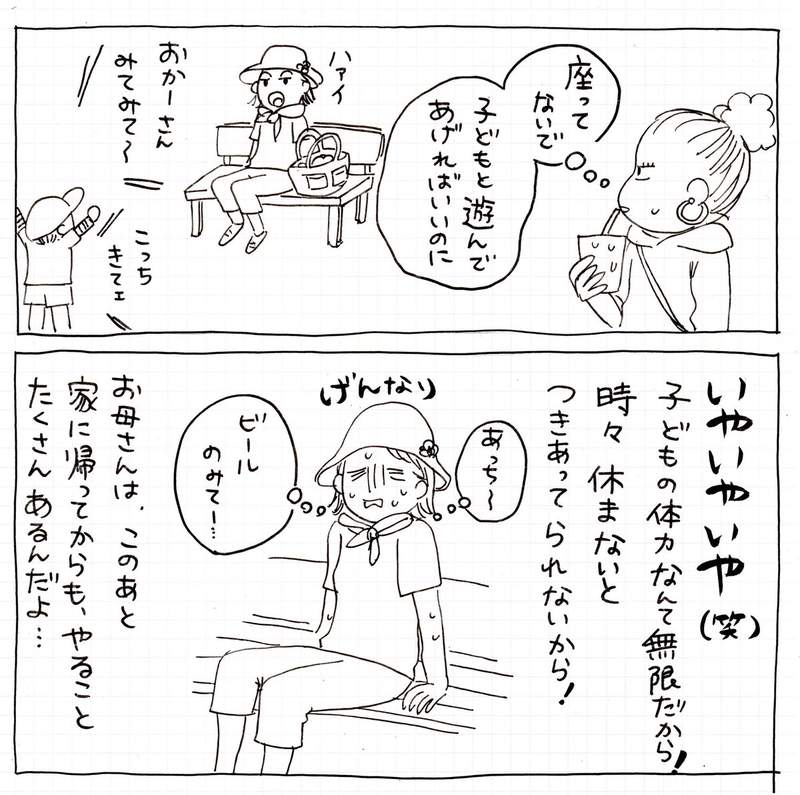 座って
ないで
子どもと遊んで
あげればいいのに
ハァイ
おかーさん
みてみて〜
こっち
きてェ
いやいやいや(笑)
子どもの体力なんて無限だから!
時々休まないと
つきあってられないから!
げんなり
あっち〜
ビール
のみてー…
お母さんは、このあと
家に帰ってからも、やること
たくさんあるんだよ…